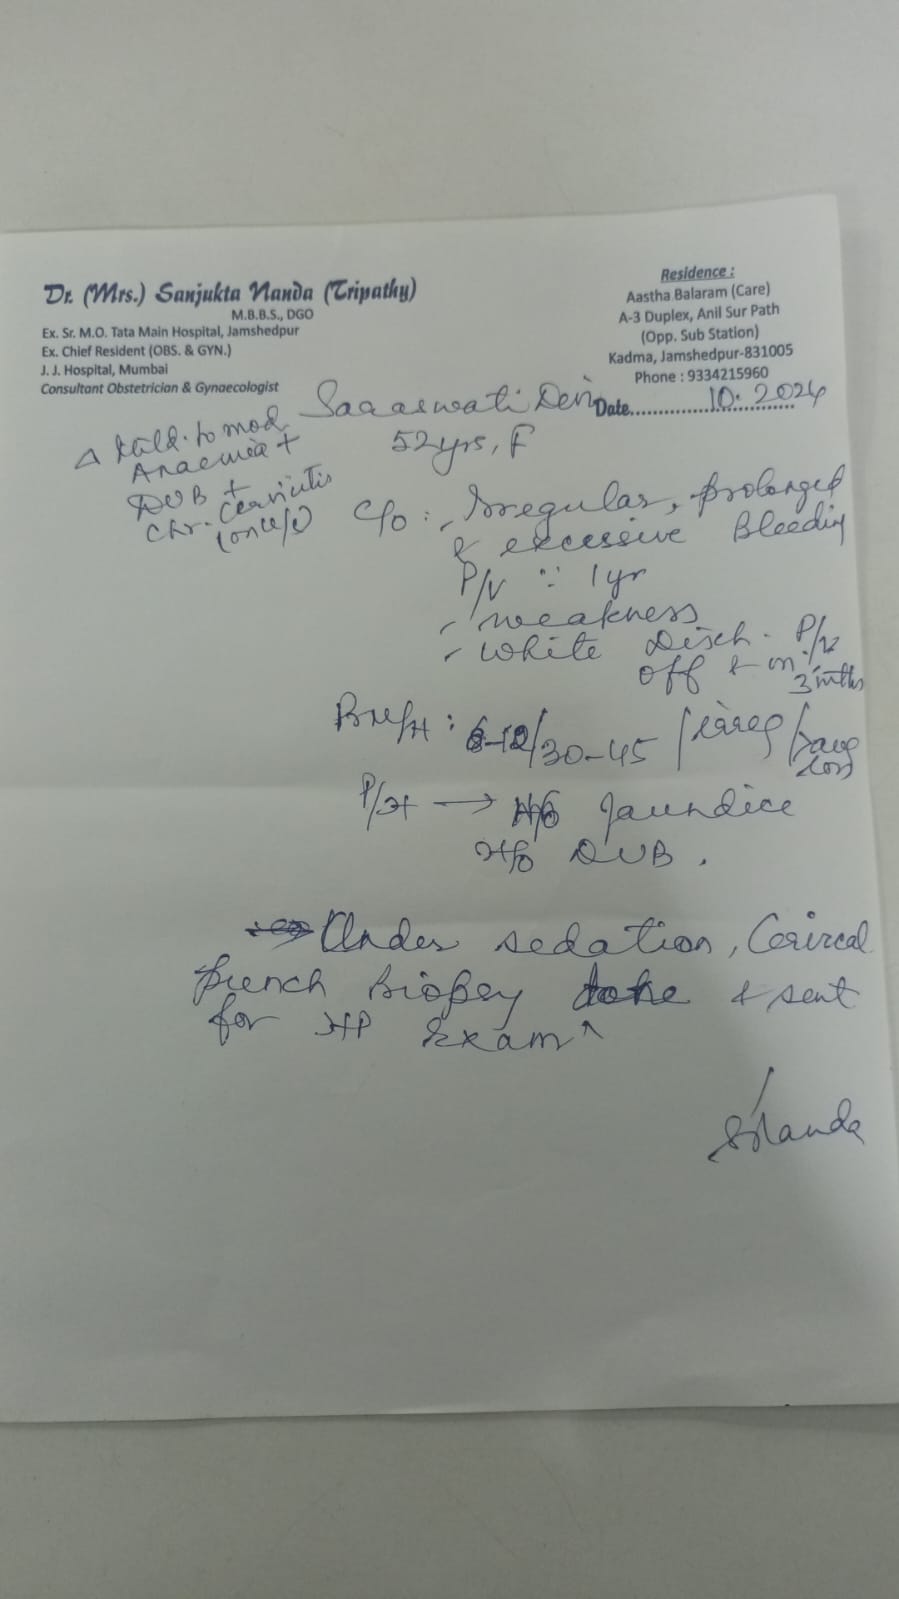 Dr. (Mrs.) Sanjukta Nanda (Tripathy)
M.B.B.S., DGO
Ex. Sr. M.O. Tata Main Hospital, Jamshedpur
Ex. Chief Resident (OBS. & GYN.)
J. J. Hospital, Mumbai
Consultant Obstetrician & Gynaecologist
Residence :
Aastha Balaram (Care)
A-3 Duplex, Anil Sur Path
(Opp. Sub Station)
Kadma, Jamshedpur-831005
Phone : 9334215960
Date.................10.2024
Saraswati Devi
52yrs, F
Δ Mild. to mod
Anaemia +
DUB +
Chr. Cervicitis
C/o : - Irregular, prolonged
& excessive Bleeding
P/V ∵ 1yr
- weakness
- White Disch. P/V
off & on ∵
3 mths
/30-45 / irreg /
P/H → H/o Jaundice
H/o DUB.
Under sedation, Cervical
punch Biopsy & sent
for HP Exam^n
SNanda